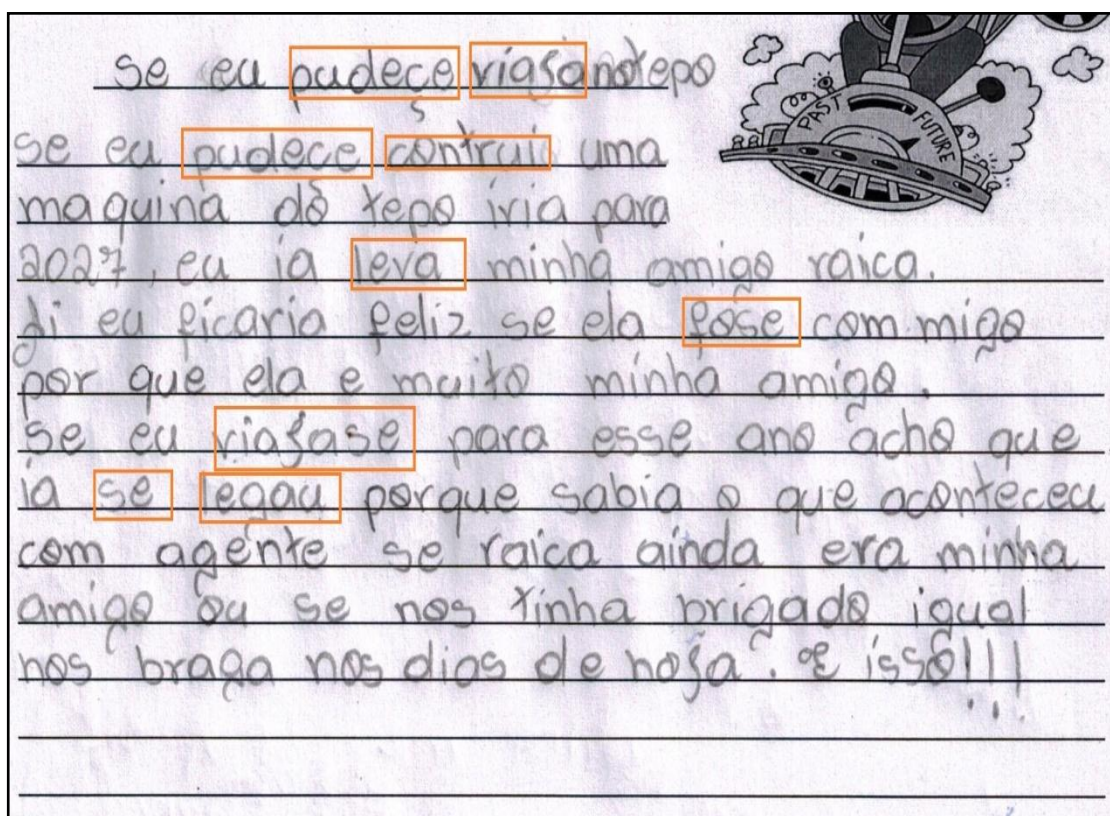 se eu pudece viajanotepo
se eu pudece contrui uma
s
maquina do tepo iria para
2027, eu ia leva minha amiga raica.
di eu ficaria feliz se ela fose com migo
por que ela e muito minha amiga.
se eu viajase para esse ano acho que
ia se legau porque sabia o que aconteceu
com agente se raica ainda era minha
amiga ou se nos tinha brigado igual
nos braga nos dias de hoja. E isso!!!
PAST
FUTURE